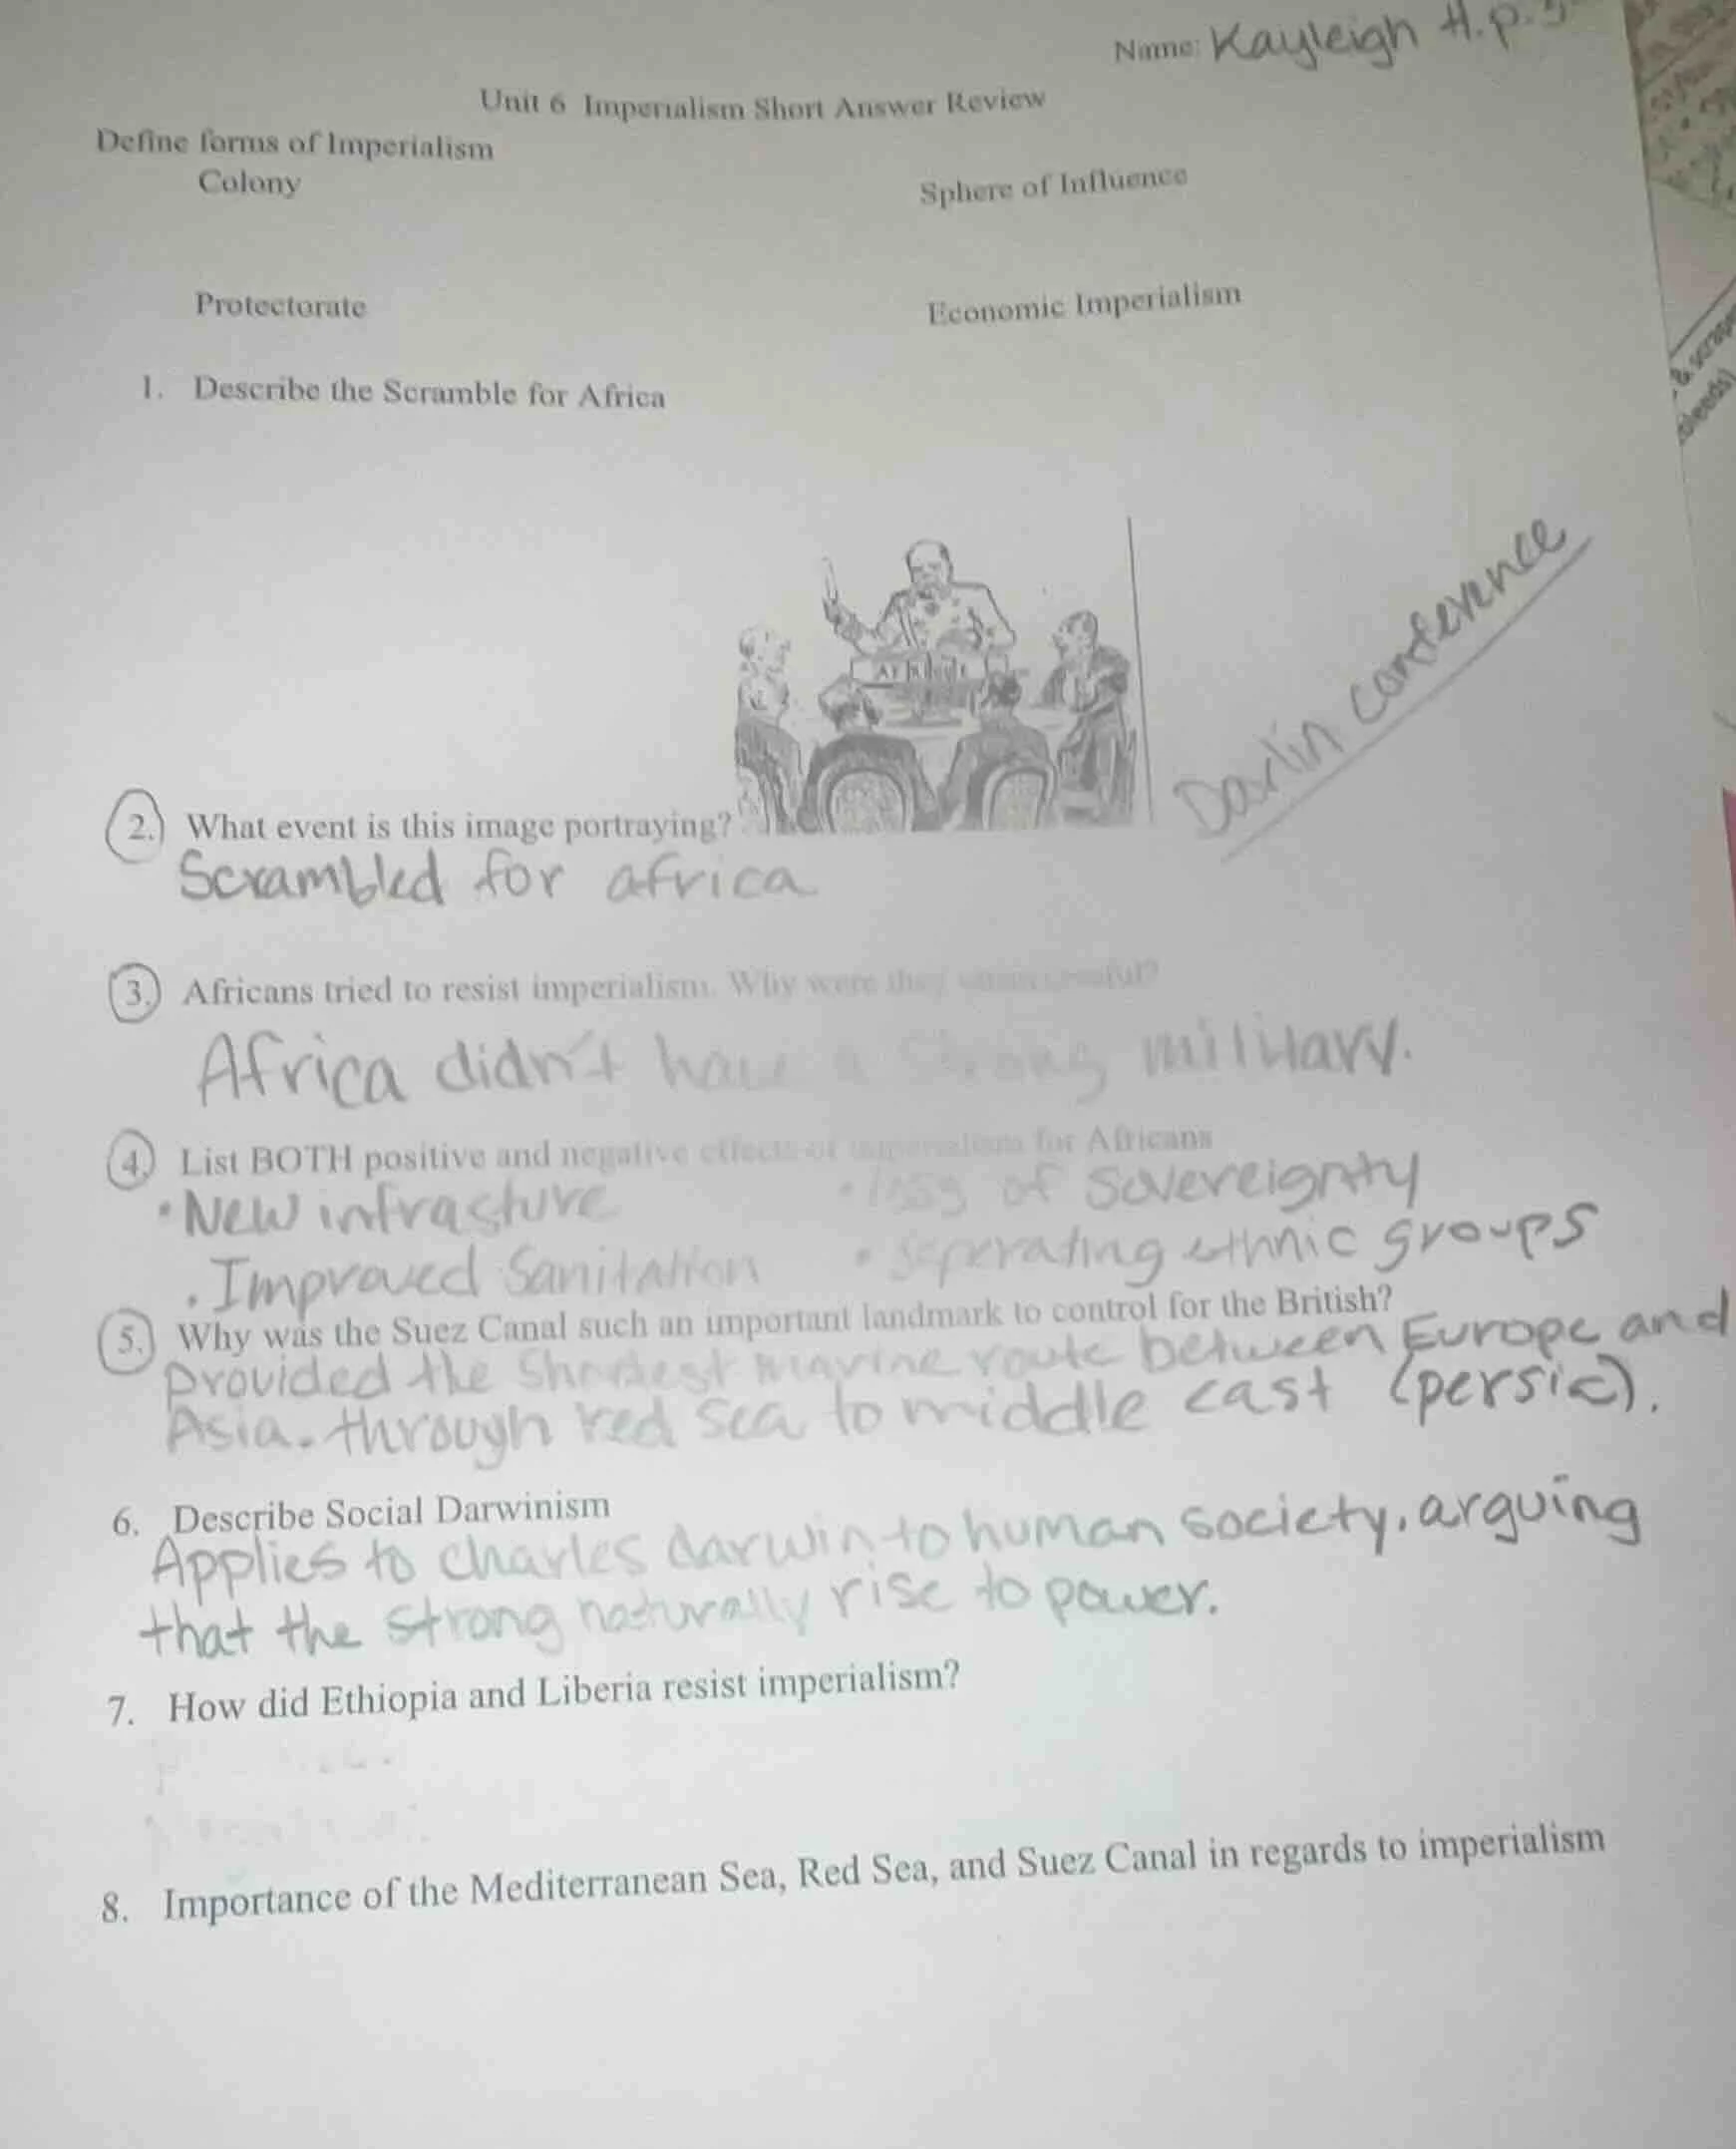 Name: Kayleigh H. p.5
Unit 6 Imperialism Short Answer Review
Define forms of Imperialism
Colony
Sphere of Influence
Protectorate
Economic Imperialism
1. Describe the Scramble for Africa
Darlin conference
2. What event is this image portraying?
Scrambled for africa
3. Africans tried to resist imperialism. Why were they unsuccessful?
Africa didn't have a strong military.
4. List BOTH positive and negative effects of imperialism for Africans
• New infrasture
• loss of sovereignty
• Improved Sanitation
• Seperating ethnic groups
5. Why was the Suez Canal such an important landmark to control for the British?
provided the Shortest marine route between Europe and
Asia. through red sea to middle east (persia).
6. Describe Social Darwinism
Applies to charles darwin to human society, arguing
that the strong naturally rise to power.
7. How did Ethiopia and Liberia resist imperialism?
8. Importance of the Mediterranean Sea, Red Sea, and Suez Canal in regards to imperialism